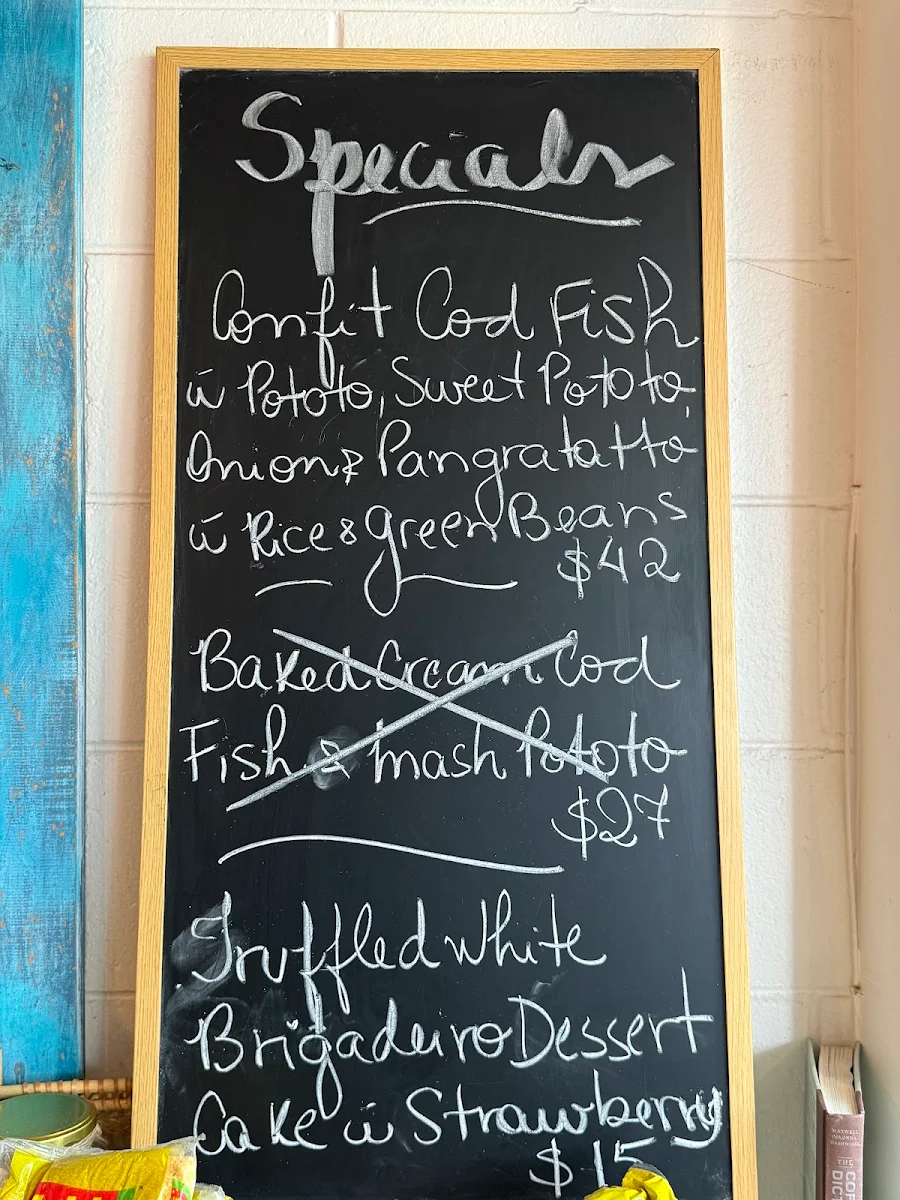 Specials
Confit Cod Fish
w̄ Pototo, Sweet Pototo,
Onion & Pangratatto
w̄ Rice & green Beans
$42
Baked Cream Cod
Fish & mash Pototo
$27
Truffled White
Brigadeiro Dessert
Cake w̄ Strawberry
$15
THE